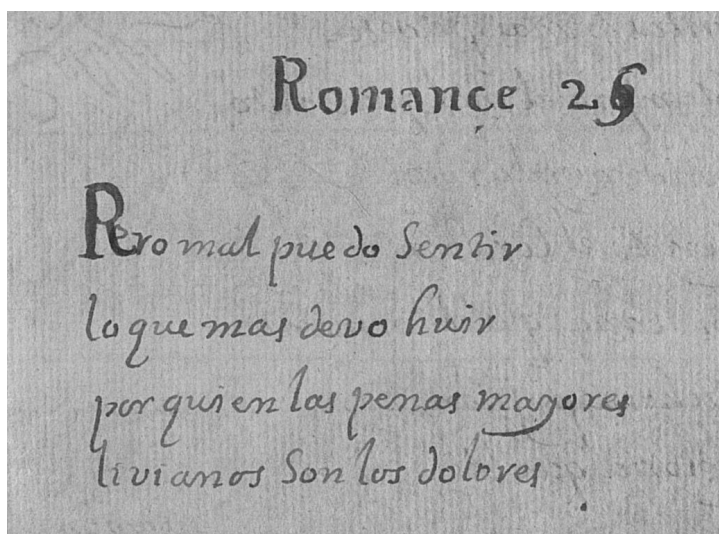 Romançe 26
Pero mal puedo Sentir
lo que mas devo huir
por quien las penas mayores
livianos Son los dolores